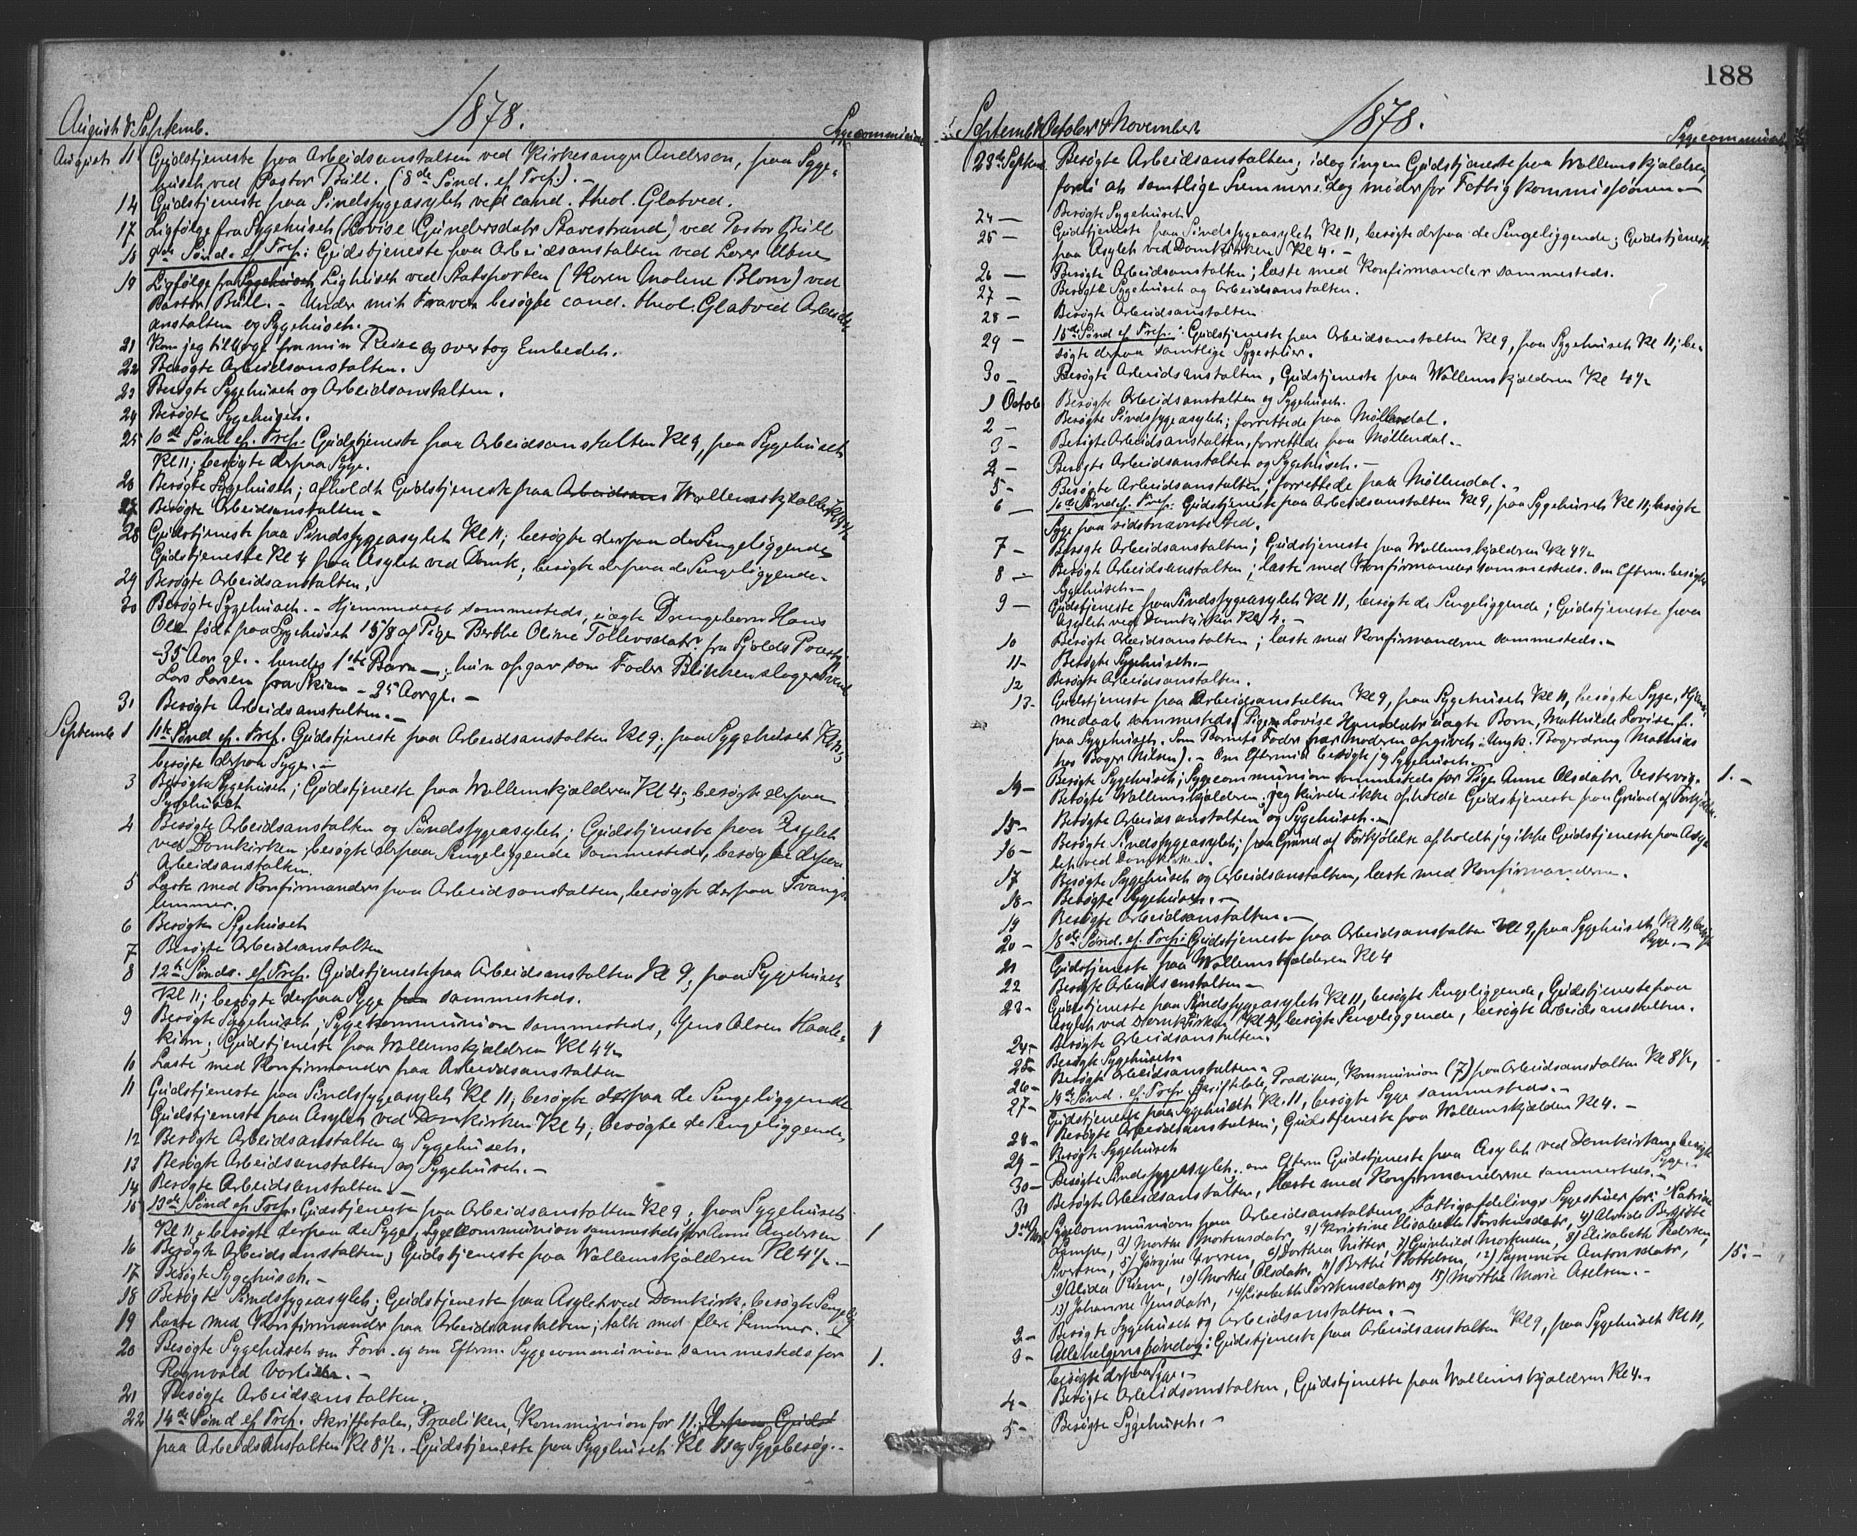 188
August & Septemb.
1878.
Sygecommunion
August 11 Gudstjeneste paa Arbeidsanstalten ved Kirkesanger Andersen, paa Syge-
huset ved Pastor Bull. (8de Sønd. ef. Tref.). —
14 Gudstjeneste paa Sindssygeasylet ved cand. theol. Glatved.
17 Ligfølge fra Sygehuset (Lovise Gundersdatr Stavestrand) ved Pastor Bull
18 9de Sønd. ef. Tref.: Gudstjeneste paa Arbeidsanstalten ved Lærer
19 Ligfølge fra Sygehuset Lighuset ved Statsporten (Karen Moline Blom) ved
Pastor Bull. – Under mit Fravær besøgte cand. theol. Glatved Arbeids-
anstalten og Sygehuset.
21 Kom jeg tilbage fra min Reise og overtog Embedet.
22 Besøgte Arbeidsanstalten.
23 Besøgte Sygehuset og Arbeidsanstalten.
24 Besøgte Sygehuset.
25 10de Sønd. ef. Tref. Gudstjeneste paa Arbeidsanstalten Kl 9, paa Sygehuset
Kl 11; besøgte derpaa Syge.
26 Besøgte Sygehuset; afholdt Gudstjeneste paa Arbeidsans Wollenskjælderen Kl 4½
27 Besøgte Arbeidsanstalten –
28 Gudstjeneste paa Sindssygeasylet Kl 11; besøgte derpaa de Sengeliggende
Gudstjeneste Kl 4 paa Asylet ved Domk.; besøgte derpaa de Sengeliggende.
29 Besøgte Arbeidsanstalten.
30 Besøgte Sygehuset. – Hjemmedaab sammesteds, uægte Drengebarn Hans
Ole født paa Sygehuset 15/8 af Pige Berthe Oline Tollevsdatr. fra
– 35 Aar gl. – hendes 1ste Barn –; hun opgav som Fader Blikkenslagersvend
Lars Larsen fra Skien – 25 Aar gl. –
31 Besøgte Arbeidsanstalten. –
Septemb 1 11te Sønd. ef. Tref. Gudstjeneste paa Arbeidsanstalten Kl 9, paa Sygehuset Kl 11;
besøgte derpaa Syge. –
3 Besøgte Sygehuset; Gudstjeneste paa Wollenskjælderen Kl 4; besøgte derpaa
Sygehuset
4 Besøgte Arbeidsanstalten og Sindssygeasylet; Gudstjeneste paa Asylet
ved Domkirken, besøgte derpaa Sengeliggende sammesteds, besøgte derpaa
Arbeidsanstalten.
5 Læste med Konfirmander paa Arbeidsanstalten, besøgte derpaa Tvangs-
lemmer.
6 Besøgte Sygehuset
7 Besøgte Arbeidsanstalten
8 12te Sønd. ef. Tref. Gudstjeneste paa Arbeidsanstalten Kl 9, paa Sygehuset
Kl 11; besøgte derpaa Syge paa sammesteds.
9 Besøgte Sygehuset; Sygekommunion sammesteds, Jens Olsen Haale- 1
kien; Gudstjeneste paa Wollenskjælderen Kl 4½
10 Læste med Konfirmander paa Arbeidsanstalten
11 Gudstjeneste paa Sindssygeasylet Kl 11; besøgte derpaa de Sengeliggende
Gudstjeneste paa Asylet ved Domkirken Kl 4; besøgte de Sengeliggende.
12 Besøgte Arbeidsanstalten og Sygehuset.
13 Besøgte Arbeidsanstalten og Sygehuset. –
14 Besøgte Arbeidsanstalten. –
15 13de Sønd. ef. Tref.: Gudstjeneste paa Arbeidsanstalten Kl 9, paa Sygehuset
Kl 11, besøgte derpaa de Syge; Sygecommunion sammesteds for Anne Andersen 1
16 Besøgte Arbeidsanstalten; Gudstjeneste paa Wollenskjælderen Kl 4½. –
17 Besøgte Sygehuset. –
18 Besøgte Sindssygeasylet; Gudstjeneste paa Asylet ved Domkirk. besøgte Sengelig.
19 Læste med Konfirmander paa Arbeidsanstalten; talte med flere Lemmer.
20 Besøgte Sygehuset om Form. og om Efterm. Sygecommunion sammesteds for 1.
Rognvald –
21 Besøgte Arbeidsanstalten.
22 14de Sønd. ef. Tref. Skriftetalen, Prædiken, Kommunion for 11; derpaa Gudst
paa Arbeidsanstalten Kl 8½. Gudstjeneste paa Sygehuset Kl 11 og Sygebesøg. –
Septemb. October & November
1878.
Sygecommunion
23de Septem. Besøgte Arbeidsanstalten; idag ingen Gudstjeneste paa Wollenskjælderen
fordi at samtlige Lemmer idag møder for Fattigkommissionen –
24 — Besøgte Sygehuset
25 — Gudstjeneste paa Sindssygeasylet Kl 11, besøgte derpaa de Sengeliggende; Gudstjeneste
paa Asylet ved Domkirken Kl 4. –
26 — Besøgte Arbeidsanstalten; læste med Konfirmander sammesteds.
27 — Besøgte Sygehuset og Arbeidsanstalten.
28 — Besøgte Arbeidsanstalten
29 — 15de Sønd ef. Tref.: Gudstjeneste paa Arbeidsanstalten Kl 9, paa Sygehuset Kl 11; be-
søgte derpaa samtlige Sygestuer.
30 — Besøgte Arbeidsanstalten, Gudstjeneste paa Wollenskjælderen Kl 4½
1 October Besøgte Arbeidsanstalten og Sygehuset.
2 — Besøgte Sindssygeasylet; forrettede paa Møllendal.
3 — Besøgte Arbeidsanstalten, forrettede paa Møllendal. –
4 — Besøgte Arbeidsanstalten og Sygehuset. –
5 – Besøgte Arbeidsanstalten, forrettede paa Møllendal.
6 — 16de Sønd ef. Tref. Gudstjeneste paa Arbeidsanstalten Kl 9, paa Sygehuset Kl 11; besøgte
Syge paa sidstnævnte Sted.
7 — Besøgte Arbeidsanstalten; Gudstjeneste paa Wollenskjælderen Kl 4½
8 — Besøgte Arbeidsanstalten; læste med Konfirmander sammesteds. Om Efterm. besøgte
Sygehuset. –
9 — Gudstjeneste paa Sindssygeasylet Kl 11, besøgte de Sengeliggende; Gudstjeneste paa
Asylet ved Domkirken Kl 4. –
10 Besøgte Arbeidsanstalten; læste med Konfirmanderne sammesteds. –
11 – Besøgte Sygehuset. –
12 Besøgte Arbeidsanstalten.
13 – Gudstjeneste paa Arbeidsanstalten Kl 9, paa Sygehuset Kl 11, besøgte Syge, Hjem-
medaab sammesteds (Pigen Lovise Hansdatr uægte Barn, Mathilde Lovise, f.
paa Sygehuset. Som Barnets Fader har Moderen opgivet: Ungk. Bagerdreng Mathias
hos Bager Nilsen). – Om Eftermid besøgte jeg Sygehuset. –
14 – Besøgte Sygehuset; Sygecommunion sammesteds for Pige Anne Olsdatr. Vestervig. 1. –
Besøgte Wollenskjælderen, jeg kunde ikke afholde Gudstjeneste paa Grund af Forkjølelse.
15 – Besøgte Arbeidsanstalten og Sygehuset. –
16 – Besøgte Sindssygeasylet; paa Grund af Forkjølelse afholdt jeg ikke Gudstjeneste paa Asy-
let ved Domkirken.
17 Besøgte Sygehuset og Arbeidsanstalten, læste med Konfirmanderne.
18 – Besøgte Sygehuset. –
19 Besøgte Arbeidsanstalten. –
20 – 18de Sønd. ef. Tref: Gudstjeneste paa Arbeidsanstalten Kl 9, paa Sygehuset Kl 11, besøgte
Syge. –
21 Gudstjeneste paa Wollenskjælderen Kl 4
22 Besøgte Arbeidsanstalten –
23 – Gudstjeneste paa Sindssygeasylet Kl 11, besøgte Sengeliggende, Gudstjeneste paa
Asylet ved Domkirken Kl 4, besøgte Sengeliggende, besøgte Arbeidsanstalten.
24 – Besøgte Arbeidsanstalten.
25 – Besøgte Sygehuset.
26 – Besøgte Arbeidsanstalten –
27 – 19de Sønd. ef. Tref: Skriftetale, Prædiken, Kommunion (7) paa Arbeidsanstalten Kl 8½,
Gudstjeneste paa Sygehuset Kl. 11, besøgte Syge sammesteds. –
28 – Besøgte Arbeidsanstalten, Gudstjeneste paa Wollenskjælderen Kl 4. –
29 – Besøgte Sygehuset
30 – Besøgte Sindssygeasylet, om Efterm Gudstjeneste paa Asylet ved Domkirken, besøgte
Syge. –
31 Besøgte Arbeidsanstalten, læste med Konfirmanderne sammesteds. –
1ste Nov. Sygecommunion paa Arbeidsanstaltens Fattigafdelings Sygestuer for: Katrine
2) Marthe Mortensdatr, 3) Kristine Elisabeth Torstensdatr, 4) Alvilde Bergitte
Iversen, 5) Jørgine Iversen, 6) Dorthea Ditter, 7) Gunhild Mortensen, 8) Elisabeth Pedersen,
9) Alida Riem, 10) Marthe Olsdatr, 11) Berthe Bottelsen, 12) Synneve Antonsdatr, 15. –
13) Johanne Jensdatr, 14) Lisebeth Torstensdatr og 15) Marthe Marie Axelsen. –
2 – Besøgte Sygehuset og Arbeidsanstalten. –
3 – Allehelgenssøndag: Gudstjeneste paa Arbeidsanstalten Kl 9, paa Sygehuset Kl 11,
besøgte derpaa Syge. –
4 – Besøgte Arbeidsanstalten, Gudstjeneste paa Wollenskjælderen Kl 4. –
5 – Besøgte Sygehuset. –